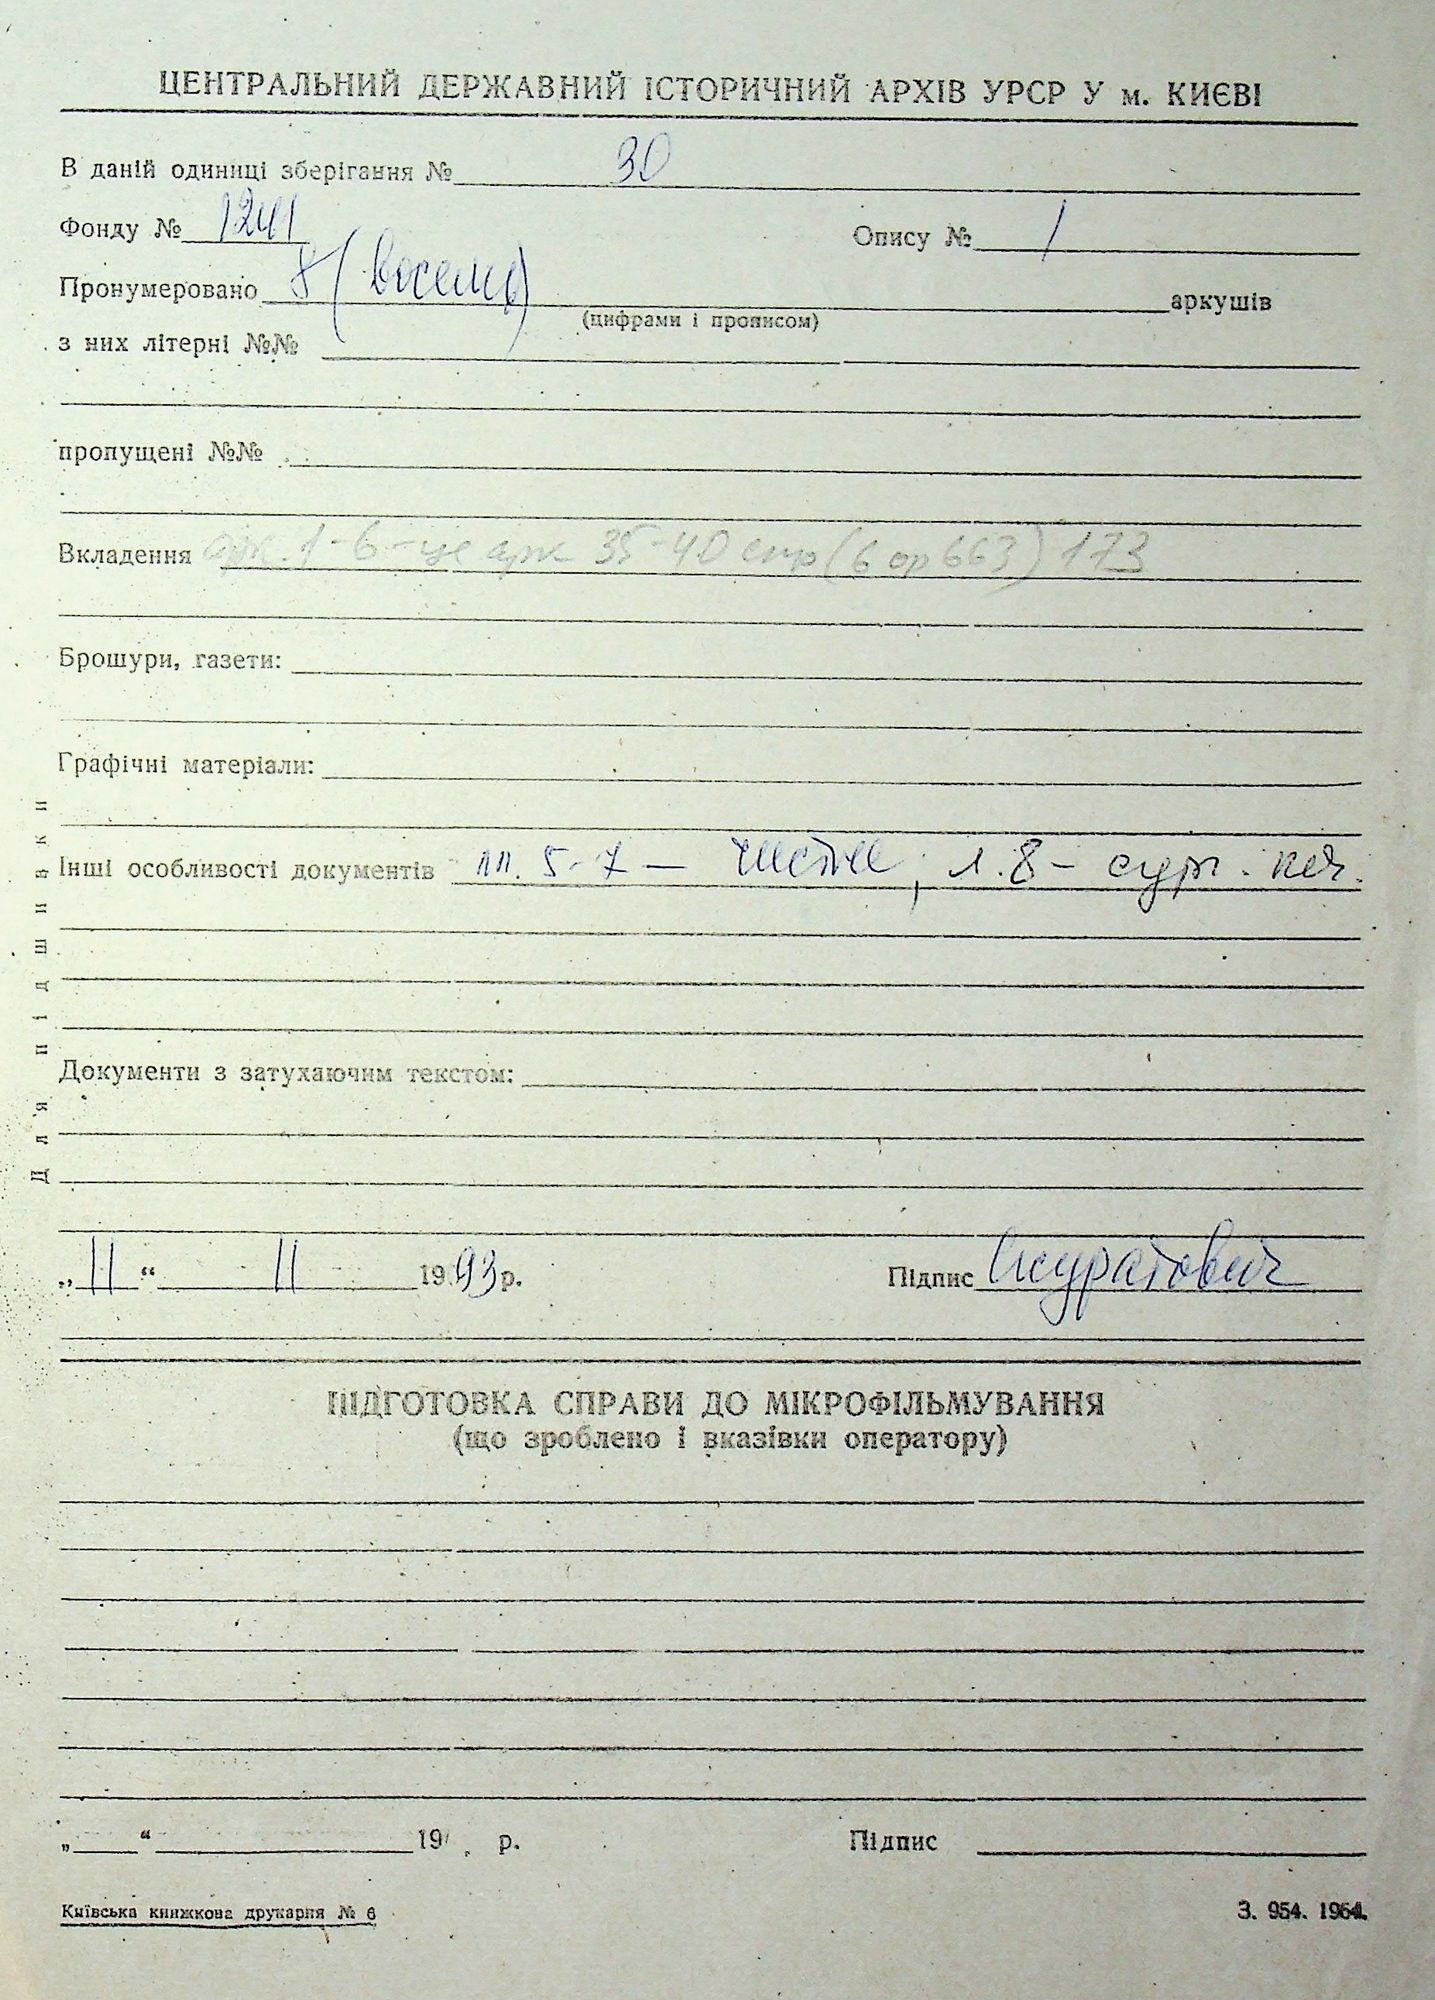 ЦЕНТРАЛЬНИЙ ДЕРЖАВНИЙ ІСТОРИЧНИЙ АРХІВ УРСР У м. КИЄВІ
В даній одиниці зберігання № 30
Фонду № 1241 Опису № 1
Пронумеровано 8 (восемь) аркушів
(цифрами і прописом)
з них літерні №№
пропущені №№
Вкладення арк. 1-6-це арк 35-40 спр (6 ор 663) 173
Брошури, газети:
Графічні матеріали:
Інші особливості документів лл. 5-7 — чистые, л. 8 — сург. печ.
Документи з затухаючим текстом:
„ 11 “ 11 1993 р. Підпис Скуратович
Для підшивки
ПІДГОТОВКА СПРАВИ ДО МІКРОФІЛЬМУВАННЯ
(що зроблено і вказівки оператору)
„ “ 19 р. Підпис
Київська книжкова друкарня № 6 З. 954. 1964.